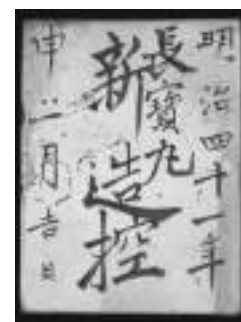 明治四十一年
長寳丸
新造控
申二月吉日